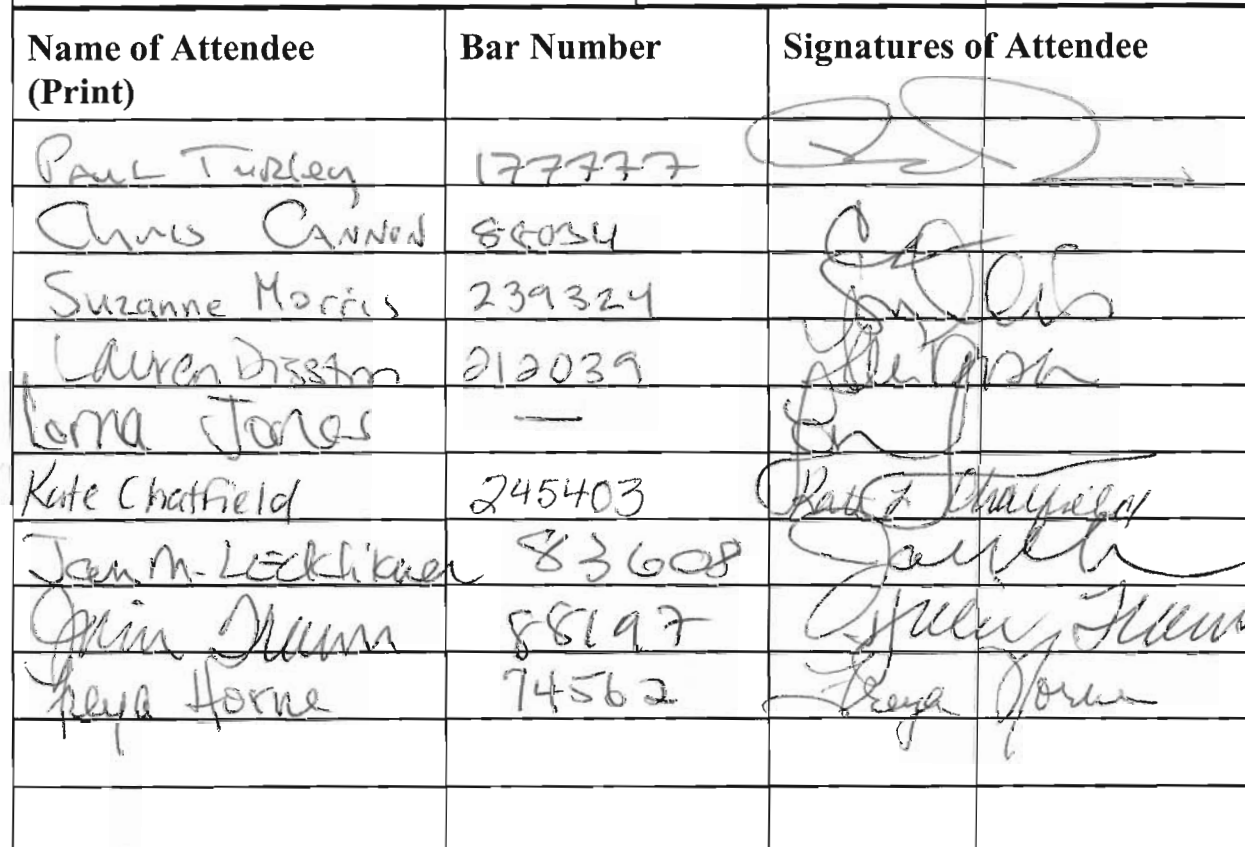 Name of Attendee Bar Number Signatures of Attendee
(Print)
Paul Turley 177777
Chris Cannon 88034
Suzanne Morris 239324
Lauren Disston 212039
Lorna Jones —
Kate Chatfield 245403 Kate Chatfield
Jan M. Lecklikner 83608
88197
Freya Horne 74562 Freya Horne